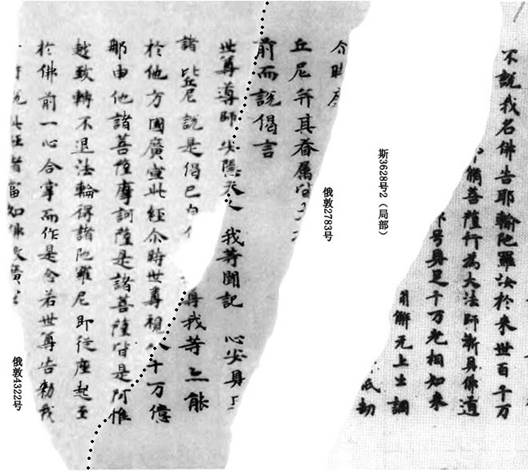 不說我名佛告耶輸陀羅汝於来世百千万
脩菩薩行為大法師漸具佛道
号具足千万光相如来
解无上士調
祇劫
斯3628号2（局部）
俄敦2783号
尒時
丘尼并其眷屬皆
前而說偈言
世尊導師 安隱天人 我等聞記 心安具
諸比丘尼說是偈已白 尊我等亦能
於他方國廣宣此經尒時世尊視八十万億
那由他諸菩薩摩訶薩是諸菩薩皆是阿惟
越致轉不退法輪得諸陀羅尼即從座起至
於佛前一心合掌而作是念若世尊告勑我
說此經者當如佛教廣
俄敦4322号